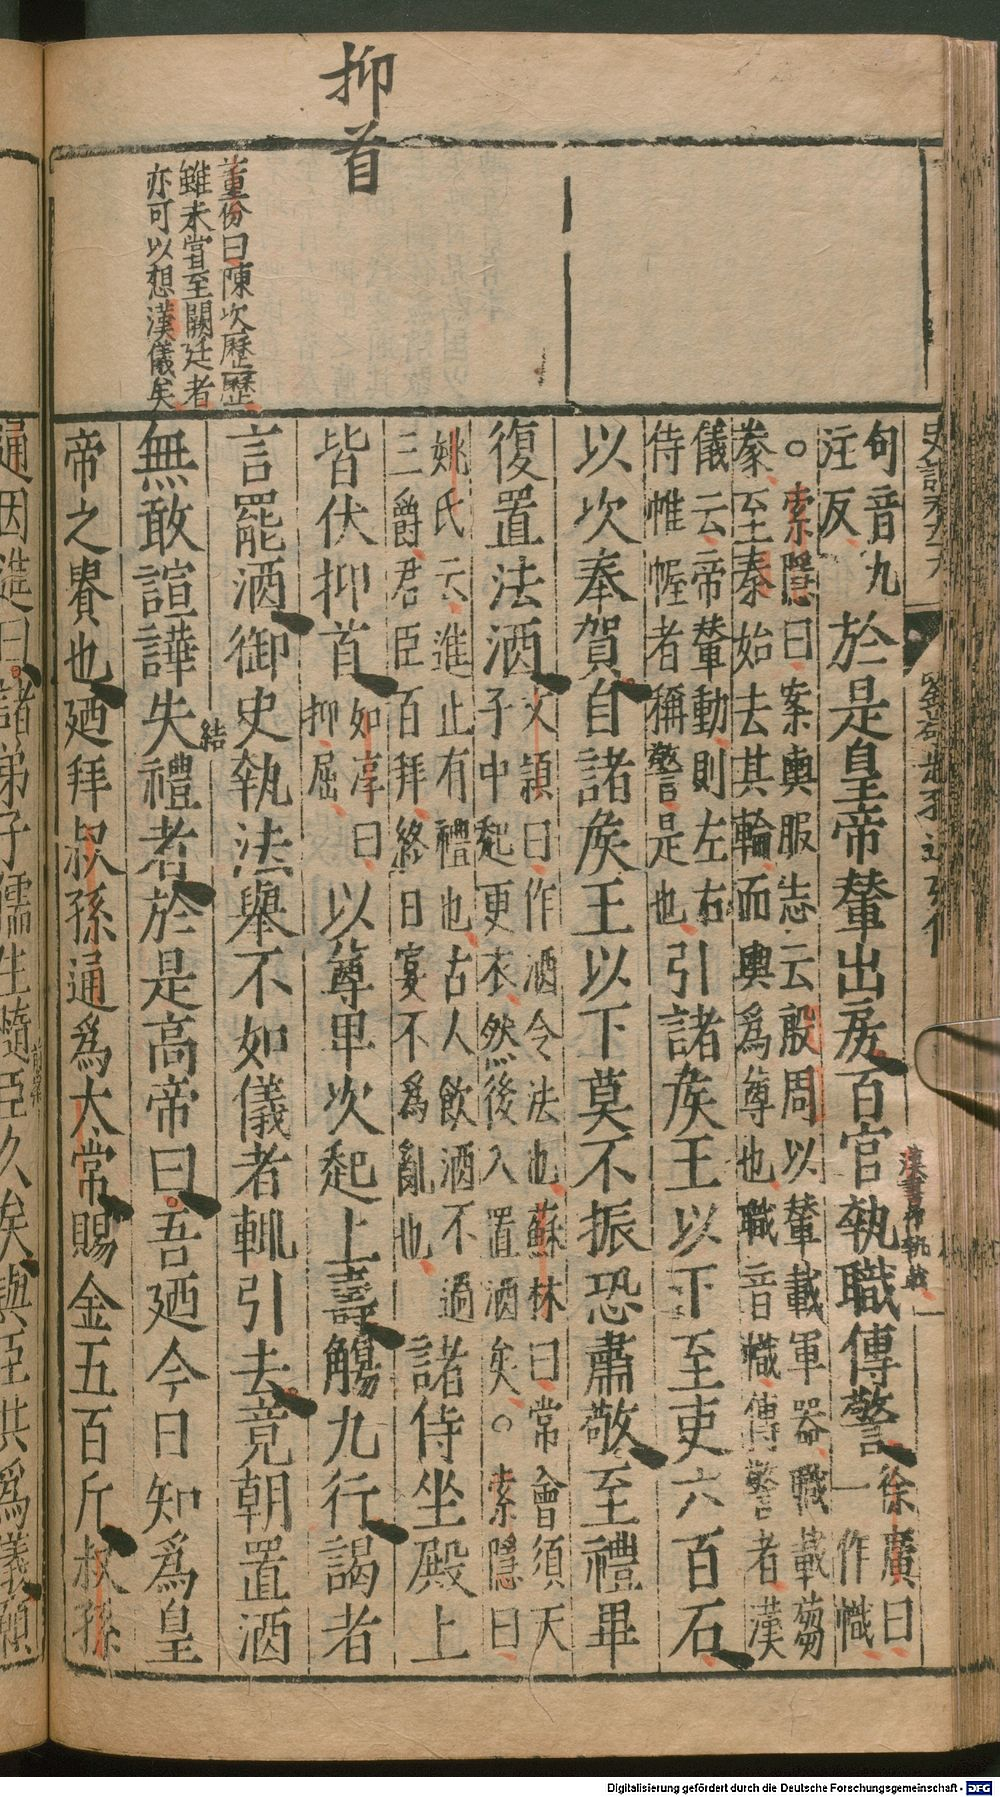 抑首
董份曰陳次歷歷
雖未嘗至闕廷者
亦可以想漢儀矣
句音九
注反
於是皇帝輦出房百官執職傳警
徐廣曰
一作幟
漢書
執
○索隱曰案輿服志云殷周以輦載軍器職載芻
豢至秦始去其輪而輿爲尊也職音幟傳警者漢
儀云帝輦動則左右
侍帷幄者稱警是也
引諸侯王以下至吏六百石
以次奉賀自諸侯王以下莫不振恐肅敬至禮畢
復置法酒
文穎曰作酒令法也蘇林曰常會須天
子中起更衣然後入置酒矣○索隱曰
姚氏云進止有禮也古人飲酒不過
三爵君臣百拜終日宴不爲亂也
諸侍坐殿上
皆伏抑首
如淳曰
抑屈
以尊卑次起上壽觴九行謁者
言罷酒御史執法舉不如儀者輒引去竟朝置酒
無敢諠譁失禮者於是高帝曰吾廼今日知爲皇
結
帝之貴也廼拜叔孫通爲太常賜金五百斤叔孫
通因進曰諸弟子儒生隨臣久矣與臣共爲儀願
Digitalisierung gefördert durch die Deutsche Forschungsgemeinschaft - DFG